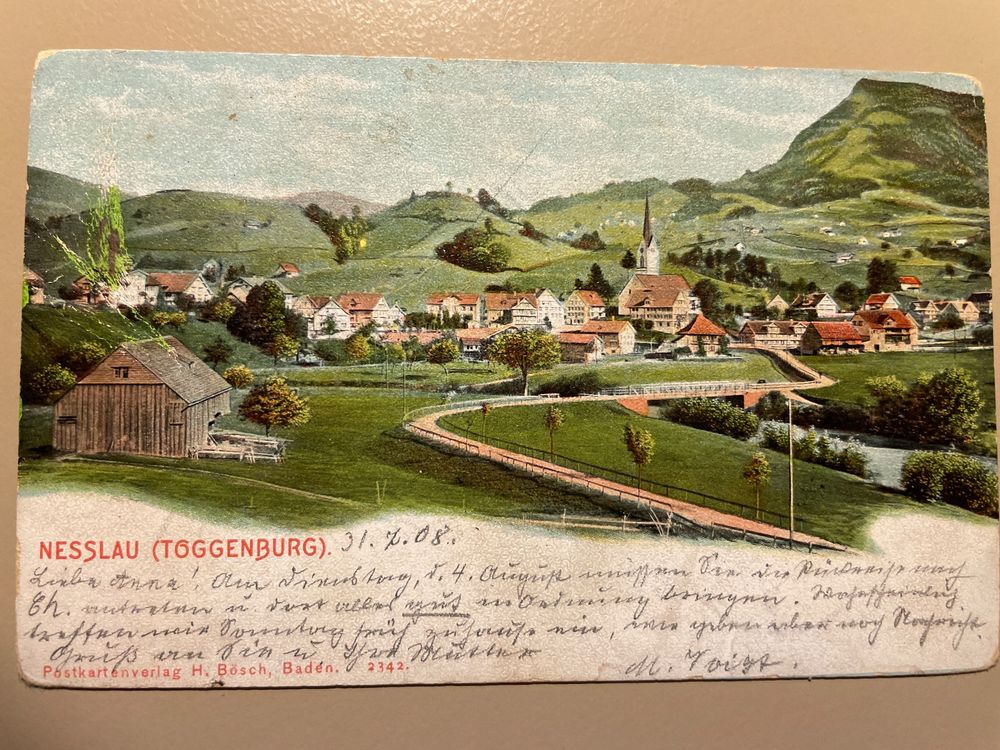 NESSLAU (TOGGENBURG). 31.7.08.
Liebe Anna! Am Dienstag, d. 4. August müssen Sie die Rückreise nach
Ch. antreten u. dort alles gut in Ordnung bringen. Wahrscheinlich
treffen wir Sonntag früh zuhause ein, wir geben aber noch Nachricht.
Gruß an Sie u. Ihre Mutter
M. Voigt.
Postkartenverlag H. Bösch, Baden. 2342.